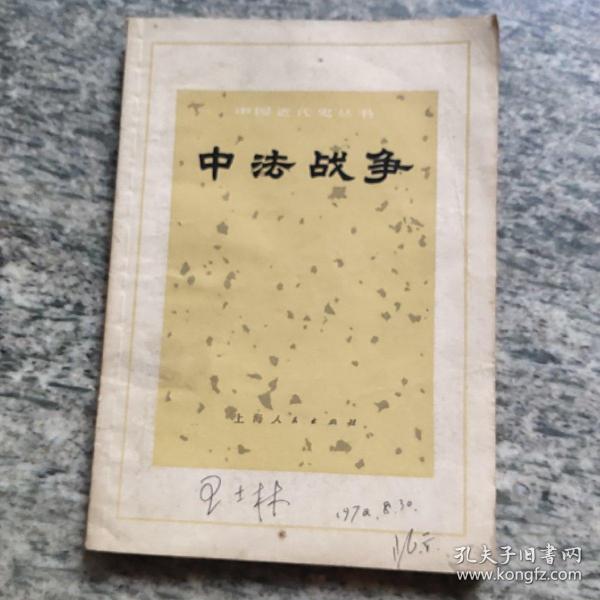 中国近代史丛书
中法战争
上海人民出版社
士林
8.30.
孔夫子旧书网
www.kongfz.com